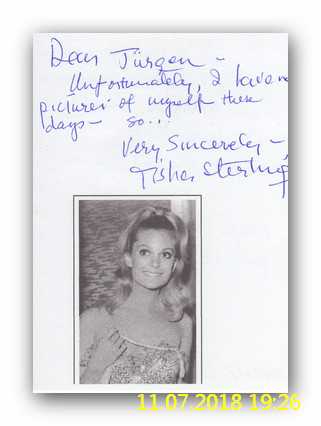 Dear Jürgen –
Unfortunately, I have no
pictures of myself these
days – so...
Very Sincerely –
Tisha Sterling
11.07.2018 19:26